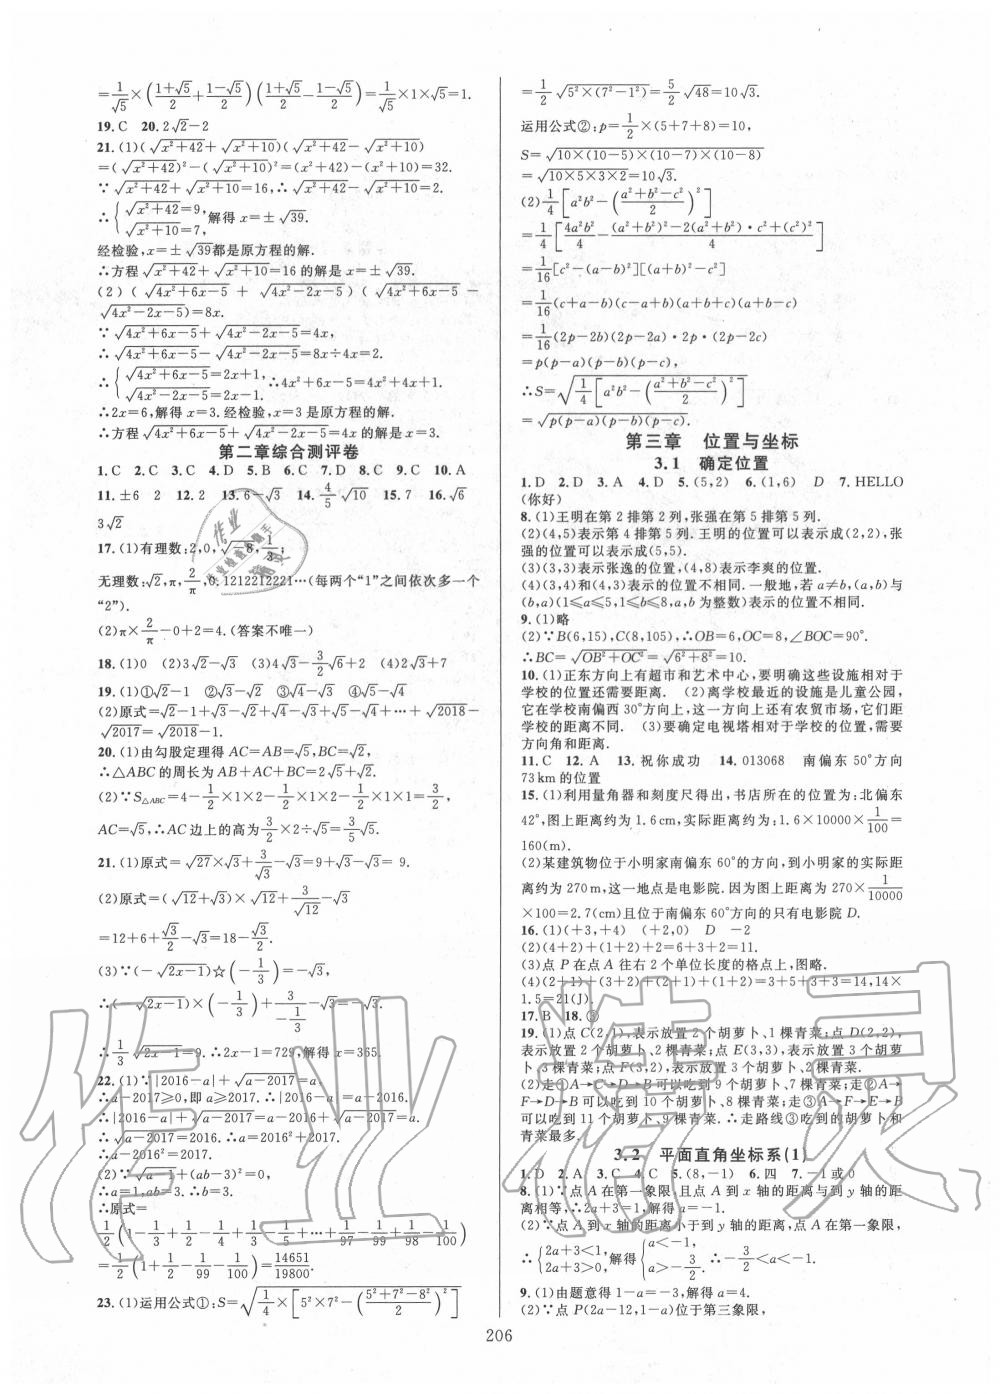 =1/√5×((1+√5)/2+(1-√5)/2)((1+√5)/2-(1-√5)/2)=1/√5×1×√5=1.
19. C 20. 2√2-2
21. (1)(√(x²+42)+√(x²+10))(√(x²+42)-√(x²+10))
=(√(x²+42))²-(√(x²+10))²=(x²+42)-(x²+10)=32.
∵√(x²+42)+√(x²+10)=16,∴√(x²+42)-√(x²+10)=2.
∴{√(x²+42)=9, √(x²+10)=7, 解得 x=±√39.
经检验,x=±√39都是原方程的解.
∴方程√(x²+42)+√(x²+10)=16的解是x=±√39.
(2)(√(4x²+6x-5)+√(4x²-2x-5))(√(4x²+6x-5)-
√(4x²-2x-5))=8x.
∵√(4x²+6x-5)+√(4x²-2x-5)=4x,
∴√(4x²+6x-5)-√(4x²-2x-5)=8x÷4x=2.
∴{√(4x²+6x-5)=2x+1, √(4x²-2x-5)=2x-1. ∴4x²+6x-5=4x²+4x+1.
∴2x=6,解得x=3.经检验,x=3是原方程的解.
∴方程√(4x²+6x-5)+√(4x²-2x-5)=4x的解是x=3.
第二章综合测评卷
1. C 2. C 3. C 4. D 5. B 6. D 7. D 8. C 9. C 10. A
11. ±6 2 12. 2 13. 6-√3 14. 4/5√10 15. 7 16. √6
3√2
17. (1)有理数:2,0,√8,1/3;
无理数:√2,π,2/π,0.1212212221…(每两个“1”之间依次多一个
“2”).
(2)π×2/π-0+2=4.(答案不唯一)
18. (1)0 (2)3√2-√3 (3)4-3/2√2 (4)2√3+7
19. (1)①√2-1 ②√3-√2 ③√4-√3
(2)原式=√2-1+√3-√2+√4-√3+√5-√4+…+√2018-
√2017=√2018-1.
20. (1)由勾股定理得AC=AB=√5,BC=√2,
∴△ABC的周长为AB+AC+BC=2√5+√2.
(2)∵S△ABC=4-1/2×1×2-1/2×2×1-1/2×1×1=3/2,
AC=√5,∴AC边上的高为3/2×2÷√5=3/5√5.
21. (1)原式=√27×√3+3/√3-√3=9+√3-√3=9.
(2)原式=(√12+√3)×√12+3/√12-√3
=12+6+√3/2-√3=18-√3/2.
(3)∵(-√(2x-1))☆(-1/3)=-√3,
∴(-√(2x-1))×(-1/3)+3/(-1/3)-(-√3)=-√3.
∴1/3√(2x-1)=9.∴2x-1=729,解得x=365.
22. (1)∵|2016-a|+√(a-2017)=a,
∴a-2017≥0,即a≥2017.∴|2016-a|=a-2016.
∴|2016-a|+√(a-2017)=a-2016+√(a-2017)=a.
∴√(a-2017)=2016.∴a-2016²=2017.
(2)∵√(a-1)+(ab-3)²=0,
∴a=1,ab=3.∴a=1,b=3.
∴原式=
1/2(1-1/3+1/2-1/4+1/3-1/5+…+1/97-1/99+1/98-1/100)
=1/2(1+1/2-1/99-1/100)=14651/19800.
23. (1)运用公式①:S=√(1/4×[5²×7²-((5²+7²-8²)/2)²])
=1/2√(5²×(7²-1²))=5/2√48=10√3.
运用公式②:p=1/2×(5+7+8)=10,
S=√(10×(10-5)×(10-7)×(10-8))
=√(10×5×3×2)=10√3.
(2)1/4[a²b²-((a²+b²-c²)/2)²]
=1/4[4a²b²/4-((a²+b²)²-2(a²+b²)·c²+(c²)²)/4]
=1/16[c²-(a-b)²][(a+b)²-c²]
=1/16(c+a-b)(c-a+b)(a+b+c)(a+b-c)
=1/16(2p-2b)(2p-2a)·2p·(2p-2c)
=p(p-a)(p-b)(p-c).
∴S=√(1/4[a²b²-((a²+b²-c²)/2)²])
=√(p(p-a)(p-b)(p-c)).
第三章 位置与坐标
3.1 确定位置
1. D 2. D 3. A 4. D 5. (5,2) 6. (1,6) D 7. HELLO
(你好)
8. (1)王明在第2排第2列,张强在第5排第5列.
(2)(4,5)表示第4排第5列.王明的位置可以表示成(2,2),张
强的位置可以表示成(5,5).
(3)(3,3)表示张逸的位置,(4,8)表示李爽的位置.
(4)(3,4)和(4,3)表示的位置不相同.一般地,若a≠b,(a,b)与
(b,a)(1≤a≤5,1≤b≤8,a,b为整数)表示的位置不相同.
9. (1)略
(2)∵B(6,15),C(8,105),∴OB=6,OC=8,∠BOC=90°.
∴BC=√(OB²+OC²)=√(6²+8²)=10.
10. (1)正东方向上有超市和艺术中心,要明确这些设施相对于
学校的位置还需要距离. (2)离学校最近的设施是儿童公园,
它在学校南偏西30°方向上,这一方向上还有农贸市场,它们距
学校的距离不同. (3)要确定电视塔相对于学校的位置,需要
方向角和距离.
11. C 12. A 13. 祝你成功 14. 013068 南偏东50°方向
73km的位置
15. (1)利用量角器和刻度尺得出,书店所在的位置为:北偏东
42°,图上距离约为1.6cm,实际距离约为:1.6×10000×1/100=
160(m).
(2)某建筑物位于小明家南偏东60°的方向,到小明家的实际距
离约为270m,这一地点是电影院.因为图上距离为270×1/10000
×100=2.7(cm)且位于南偏东60°方向的只有电影院D.
16. (1)(+3,+4) (+2,0) D -2
(2)(2+4)+(1+2)+2=6+3+2=11.
(3)点P在点A往右2个单位长度的格点上,图略.
(4)(2+1)+(3+2)+(4+2)=3+5+6=14,14×
1.5=21(J).
17. B 18. ③
19. (1)点C(2,1),表示放置2个胡萝卜、1棵青菜;点D(2,2),
表示放置2个胡萝卜、2棵青菜;点E(3,3),表示放置3个胡萝
卜、3棵青菜;点F(3,2),表示放置3个胡萝卜、2棵青菜.
(2)走①A→C→D→B可以吃到9个胡萝卜、7棵青菜;走②A→
F→D→B可以吃到10个胡萝卜、8棵青菜;走③A→F→E→B
可以吃到11个胡萝卜、9棵青菜.∴走路线③吃到的胡萝卜和
青菜最多.
3.2 平面直角坐标系(1)
1. D 2. A 3. C 4. C 5. (8,-1) 6. 四 7. -1或0
8. (1)∵点A在第一象限,且点A到x轴的距离与到y轴的距
离相等,∴2a+3=1,解得a=-1.
(2)∵点A到x轴的距离小于到y轴的距离,点A在第一象限,
∴{2a+3<1, 2a+3>0, 解得{a<-1, a>-3/2. ∴-3/2<a<-1.
9. (1)由题意得1-a=-3,解得a=4.
(2)∵点P(2a-12,1-a)位于第三象限,
206
作业精灵